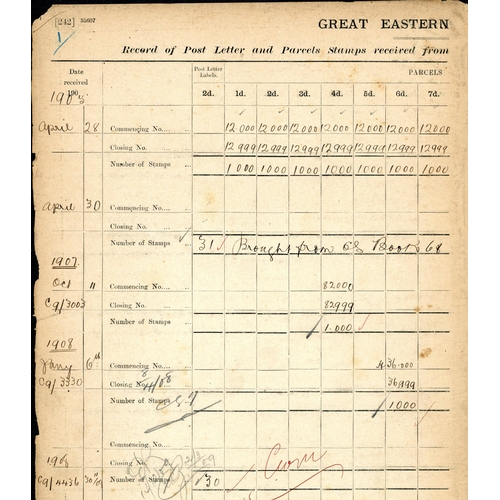 [242] 35607
1
GREAT EASTERN
Record of Post Letter and Parcels Stamps received from
Date received 190 Post Letter Labels. PARCELS
2d. 1d. 2d. 3d. 4d. 5d. 6d. 7d.
April 28 Commencing No.... ... 12000 12000 12000 12000 12000 12000 12000
Closing No. ... 12999 12999 12999 12999 12999 12999 12999
Number of Stamps ... 1000 1000 1000 1000 1000 1000 1000
April 30 Commencing No.... ...
Closing No. ...
Number of Stamps 31 Brought from Book 68
1907
Oct 11 Commencing No.... ... 82000
C9/3003 Closing No. ... 82999
Number of Stamps ... 1.000
1908
Jany 6th Commencing No.... ... 36.000
C9/3330 Closing No. 36999
Number of Stamps ... 1000
Commencing No.... ...
190 Closing No.
C9/4436 30 Number of Stamps 30